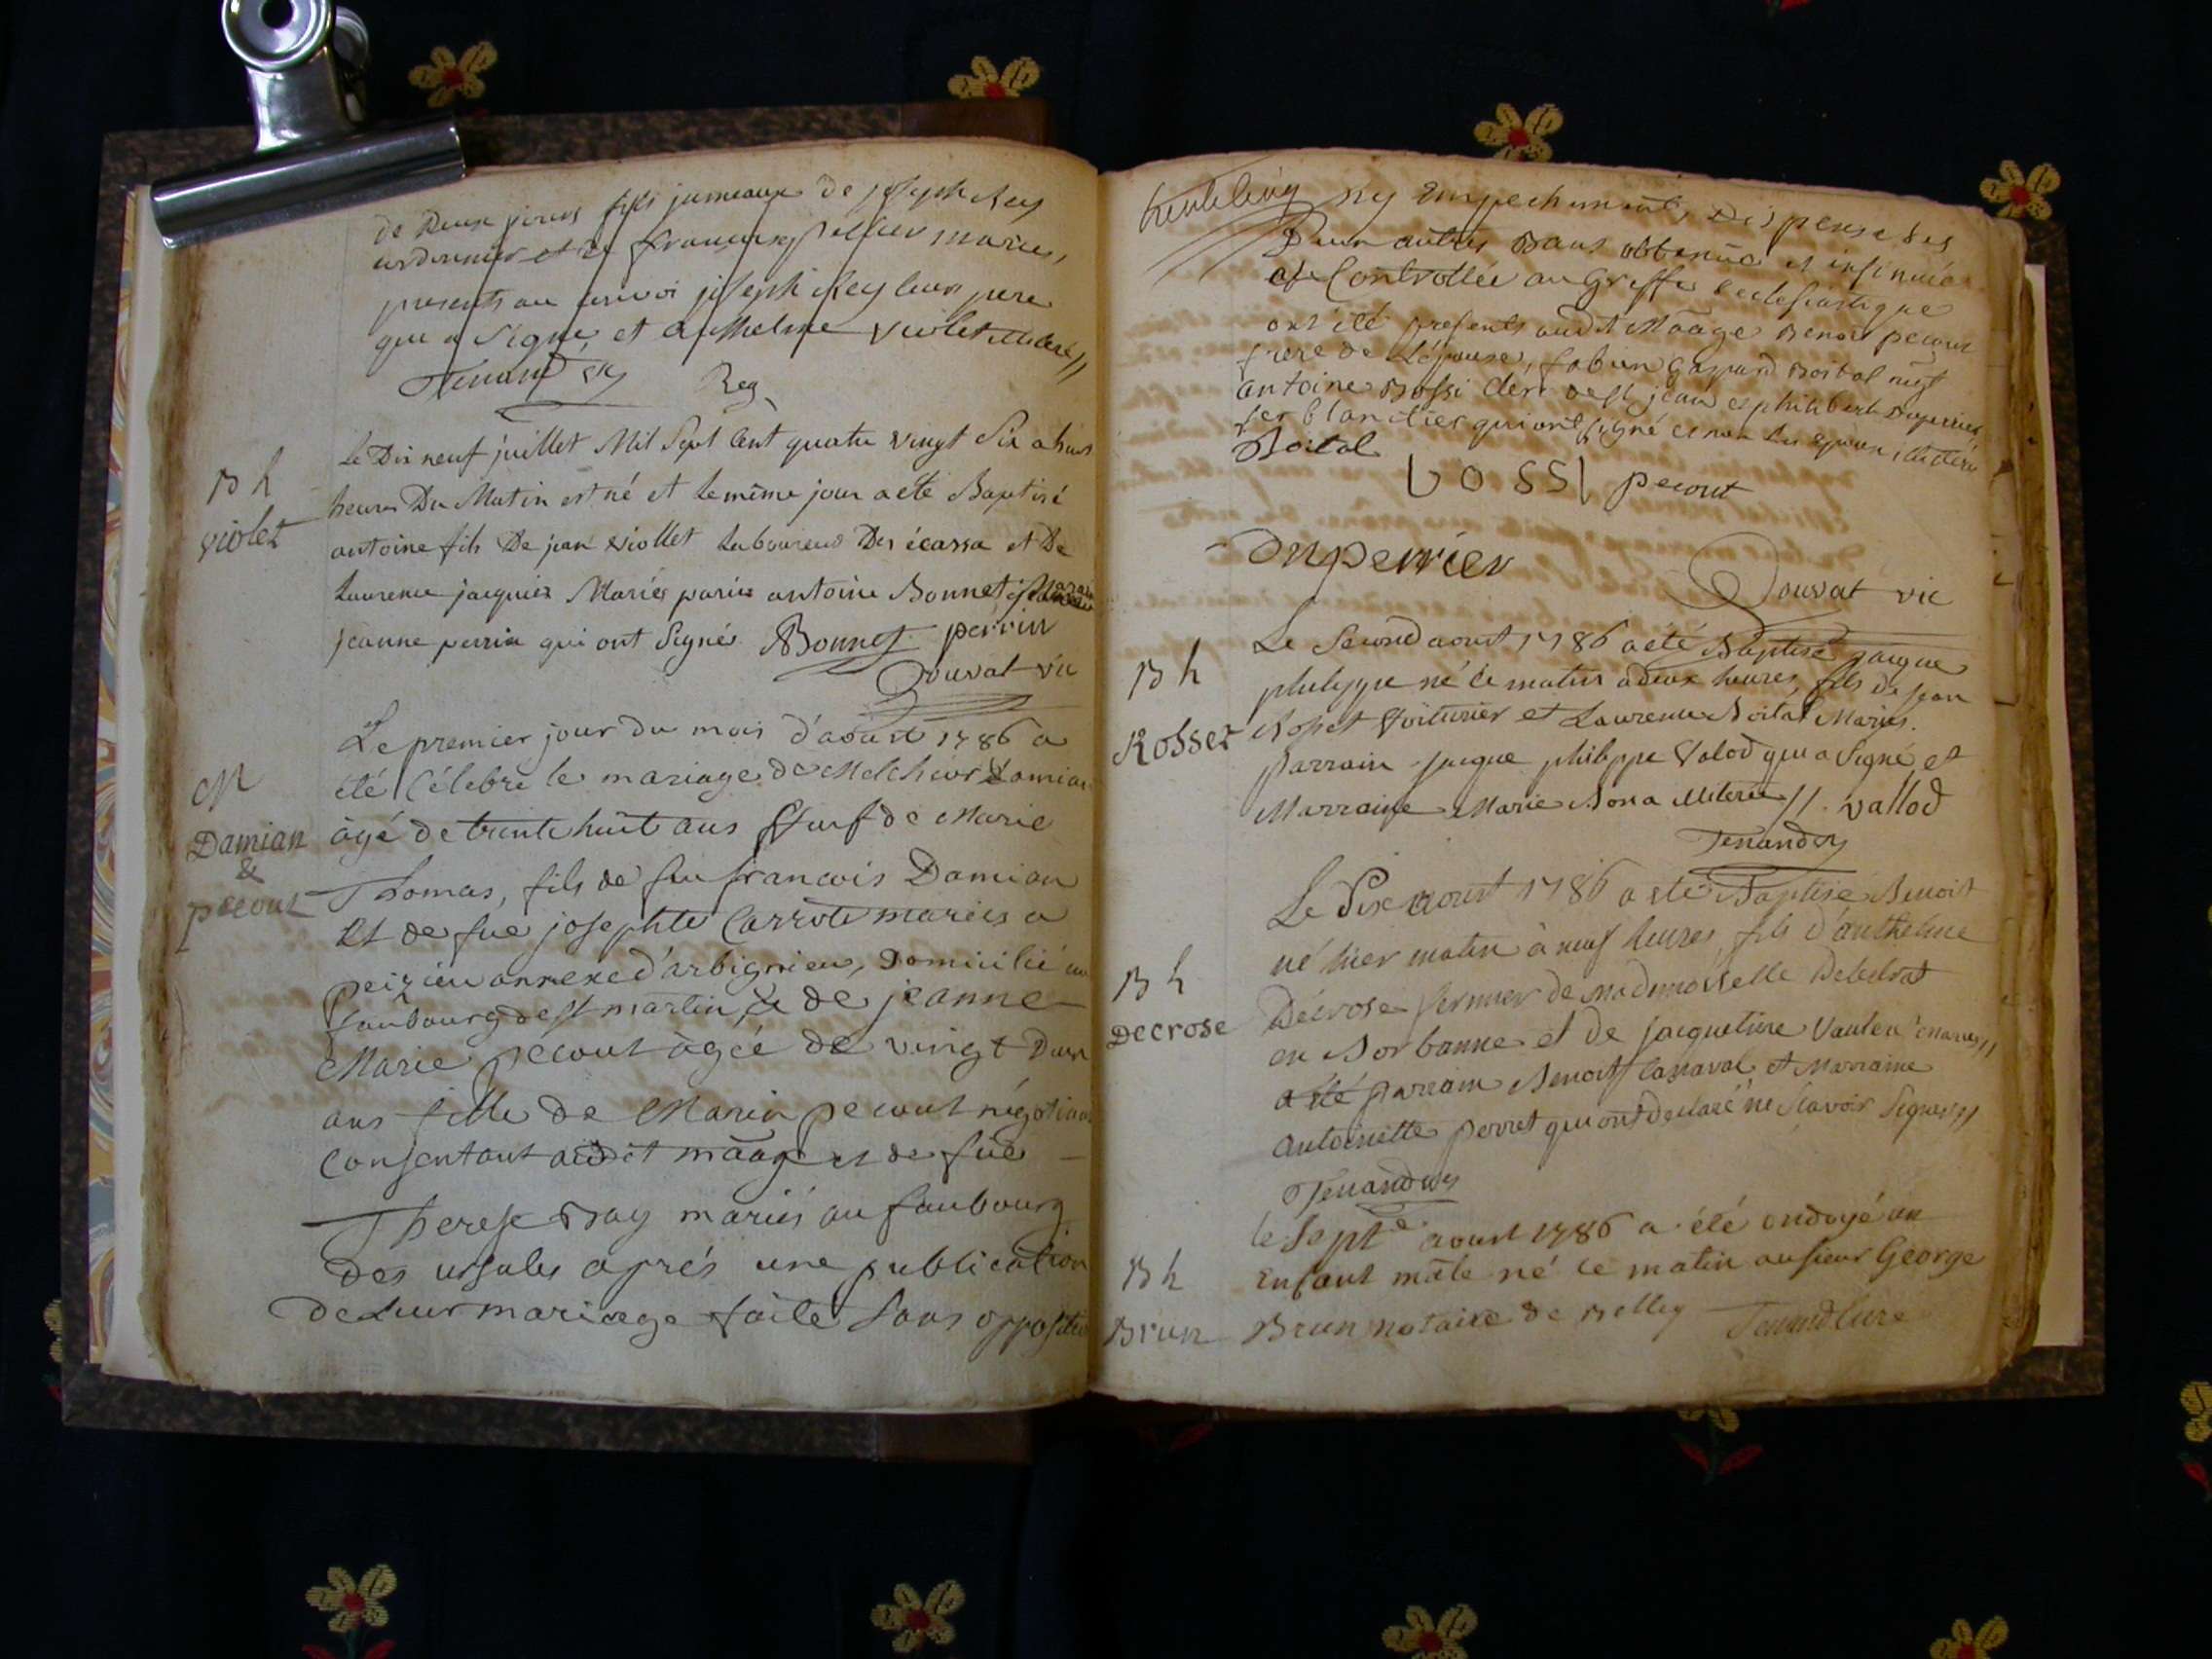 de Deux jours fils jumeaux de joseph Rey
cordonnier et de françoise pellier mariés,
presents au convoi joseph Rey leur pere
qui a signé, et anthelme violet
Tenand Rey
B h
violet
Le Dix neuf juillet Mil Sept Cent quatre vingt Six a huit
heures Du Matin est né et le même jour a été Baptisé
antoine fils De jean viollet Laboureur Des écassa et De
Laurence jacquier Mariés parin antoine Bonnet
jeanne perrin qui ont Signés Bonnet perrin
Douvat vic
M
Damian
&
pecout
Le premier jour du mois d'aoust 1786 a
été Célebré le mariage de Melchior Damian
âgé de trente huit ans veuf de Marie
Thomas, fils de feu francois Damian
Et de fue josephte Carrote mariés a
peizieu annexe d'arbignieu, Domicilié au
faubourg de st martin, & de jeanne
Marie pecout âgée de vingt Deux
ans fille de Marin pecout négotiant
Consentant audit mâage et de füe
Therese Bay mariés au faubourg
des ursules aprés une publication
de Leur mariage faite sans opposition
ny Empechement, Dispense des
Deux autres Bans obtenüe et insinuée
et Controllée au Greffe Ecclesiastique
ont été presents audit Mâage Benoit pecout
frere de L'épouse, gaspard Boital
antoine Bossi clerc de st jean et philibert Duperrier
ferblantier qui ont signé et non les époux illiterés
Boital
BOSSI pecout
Duperrier
Douvat vic
B h
Rosset
Le Second aoust 1786 a été Baptisé jacque
philippe né ce matin a deux heures, fils de jean
Rosset Voiturier et Laurence Boital Mariés.
parrain jacque philippe Valod qui a Signé et
Marraine Marie Bona illiterée //. vallod
Tenand
B h
Decrose
Le Six aoust 1786 a été Baptisé Benoit
né hier matin à neuf heures fils d'anthelme
Décrose fermier de Mademoiselle
en Sorbanne et de jacqueline mariés //
a été parrain Benoit Cannaval et Marraine
antoinette perret qui ont déclaré ne Scavoir Signer //
Tenand
B h
Brun
le Sept.e aoust 1786 a été ondoyé un
Enfant mâle né ce matin au sieur George
Brun notaire de Belley Tenand Curé